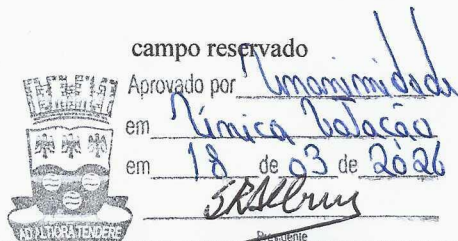 campo reservado
Aprovado por Unanimidade
em Única Votação
em 18 de 03 de 2026
Presidente
AD ALTIORA TENDERE